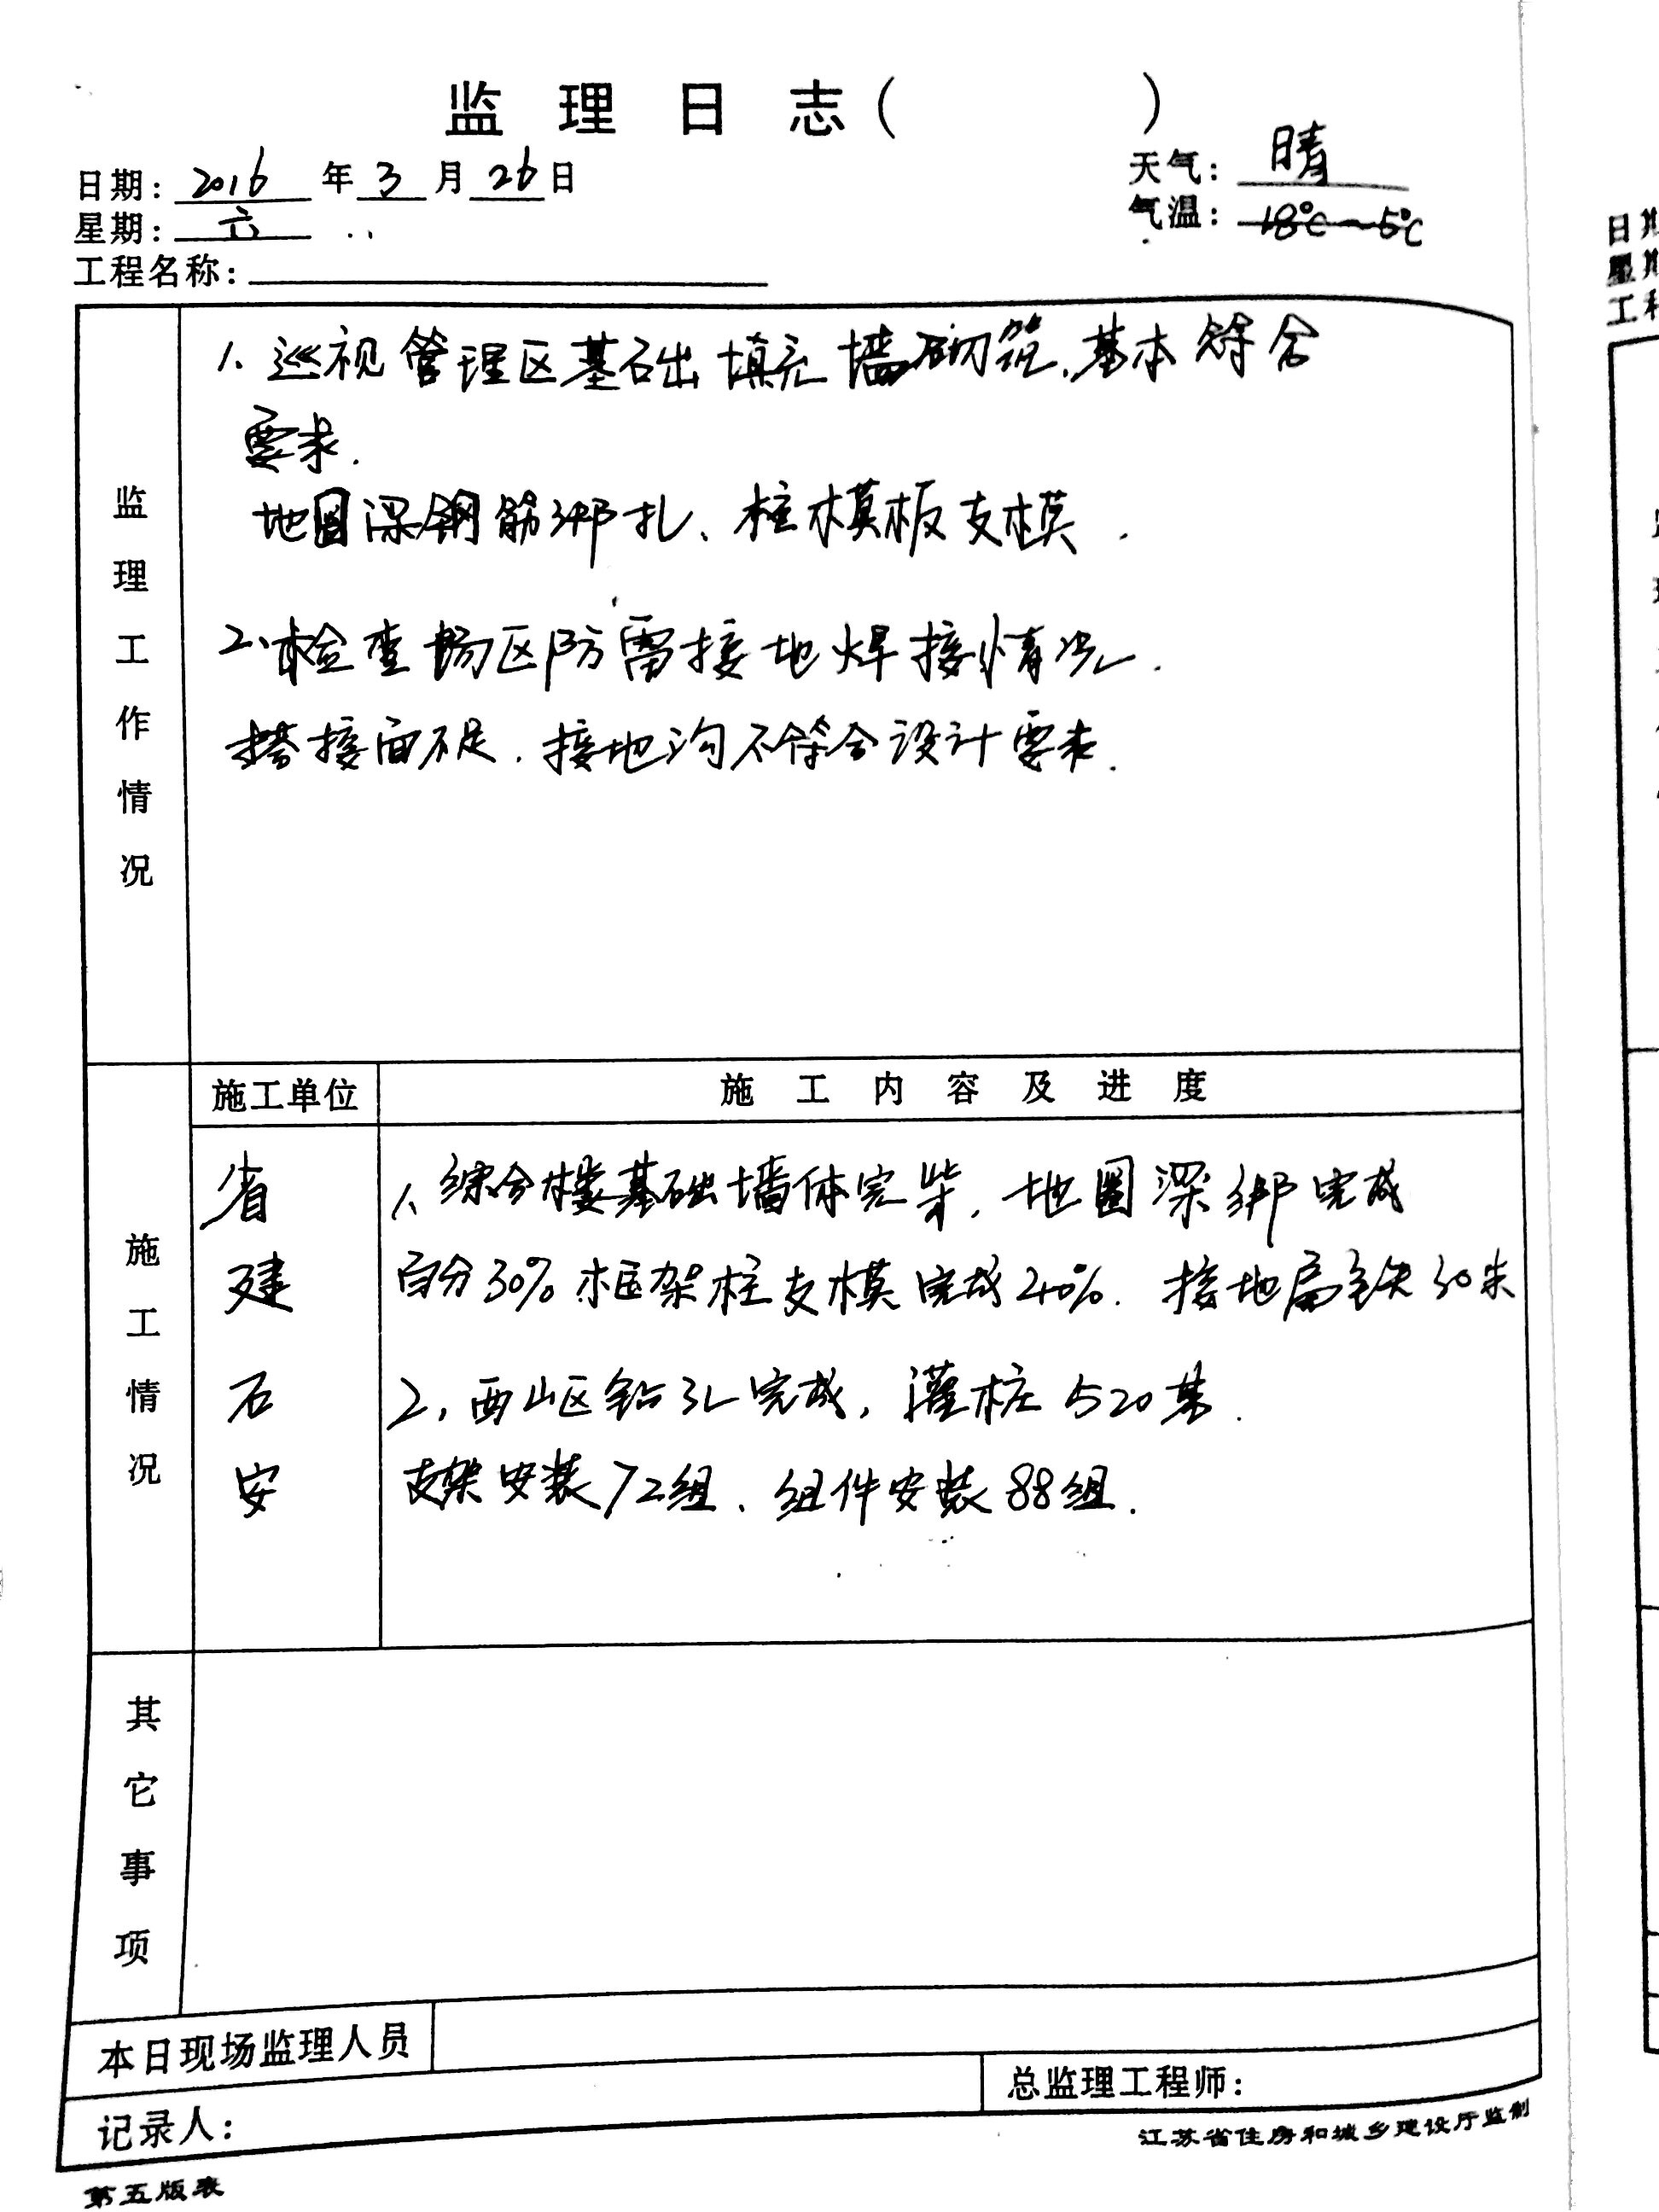 监理日志(        )
日期: 2016 年 3 月 26 日
天气: 晴
星期: 六
气温: 18℃~5℃
工程名称:
监理工作情况
1、巡视管理区基础填充墙砌筑,基本符合
要求.
地圈梁钢筋绑扎、柱模板支模.
2、检查场区防雷接地焊接情况.
搭接面不足.接地沟不符合设计要求.
施工情况
施工单位
施工内容及进度
省建
石安
1、综合楼基础墙体完毕,地圈梁绑完成
百分30% 框架柱支模完成40%. 接地扁铁30米
2,西山区钻孔完成,灌桩520基.
支架安装72组、组件安装88组.
其它事项
本日现场监理人员
总监理工程师:
记录人:
江苏省住房和城乡建设厅监制
第五版表
日期
星期
工程